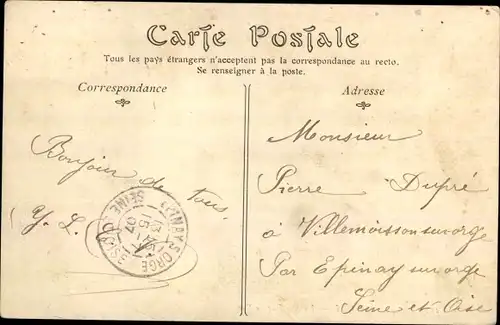 Carte Postale
Tous les pays étrangers n'acceptent pas la correspondance au recto.
Se renseigner à la poste.
Correspondance
Bonjour de tous.
Y. L.
EPINAY-S-ORGE
15
07
SEINE-ET-OISE
Adresse
Monsieur
Pierre Dupré
à Villemoisson sur orge
Par Epinay sur orge
Seine et Oise